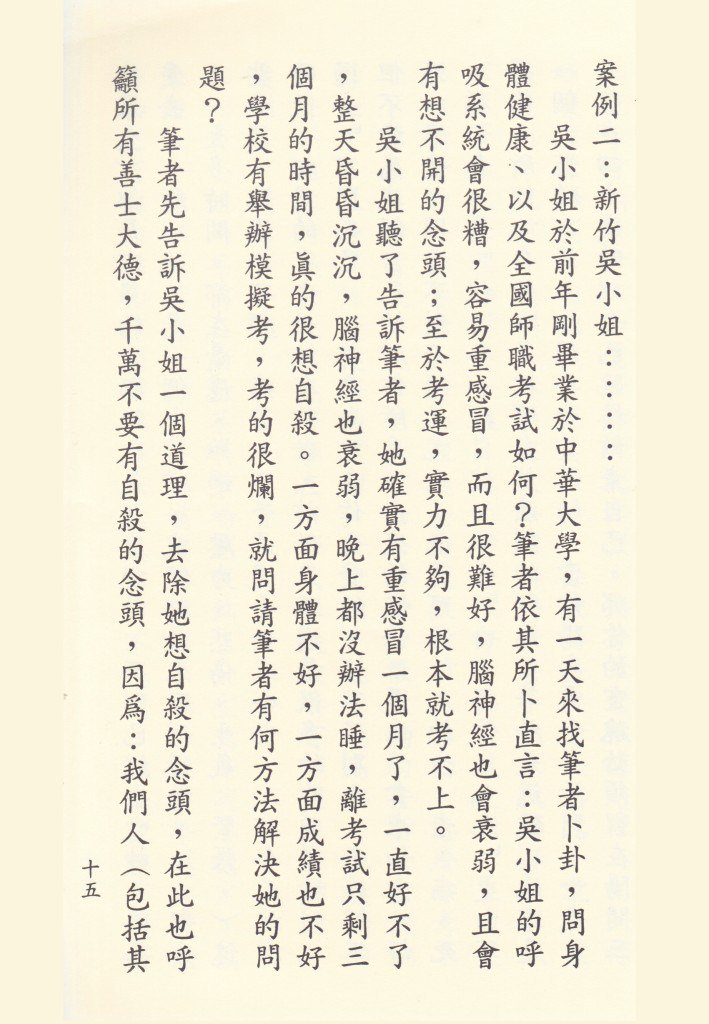 案例二：新竹吳小姐：：：：
吳小姐於前年剛畢業於中華大學，有一天來找筆者卜卦，問身
體健康、以及全國師職考試如何？筆者依其所卜直言：吳小姐的呼
吸系統會很糟，容易重感冒，而且很難好，腦神經也會衰弱，且會
有想不開的念頭；至於考運，實力不夠，根本就考不上。
吳小姐聽了告訴筆者，她確實有重感冒一個月了，一直好不了
，整天昏昏沉沉，腦神經也衰弱，晚上都沒辦法睡，離考試只剩三
個月的時間，眞的很想自殺。一方面身體不好，一方面成績也不好
，學校有舉辦模擬考，考的很爛，就問請筆者有何方法解決她的問
題？
筆者先告訴吳小姐一個道理，去除她想自殺的念頭，在此也呼
籲所有善士大德，千萬不要有自殺的念頭，因爲：我們人（包括其
十五